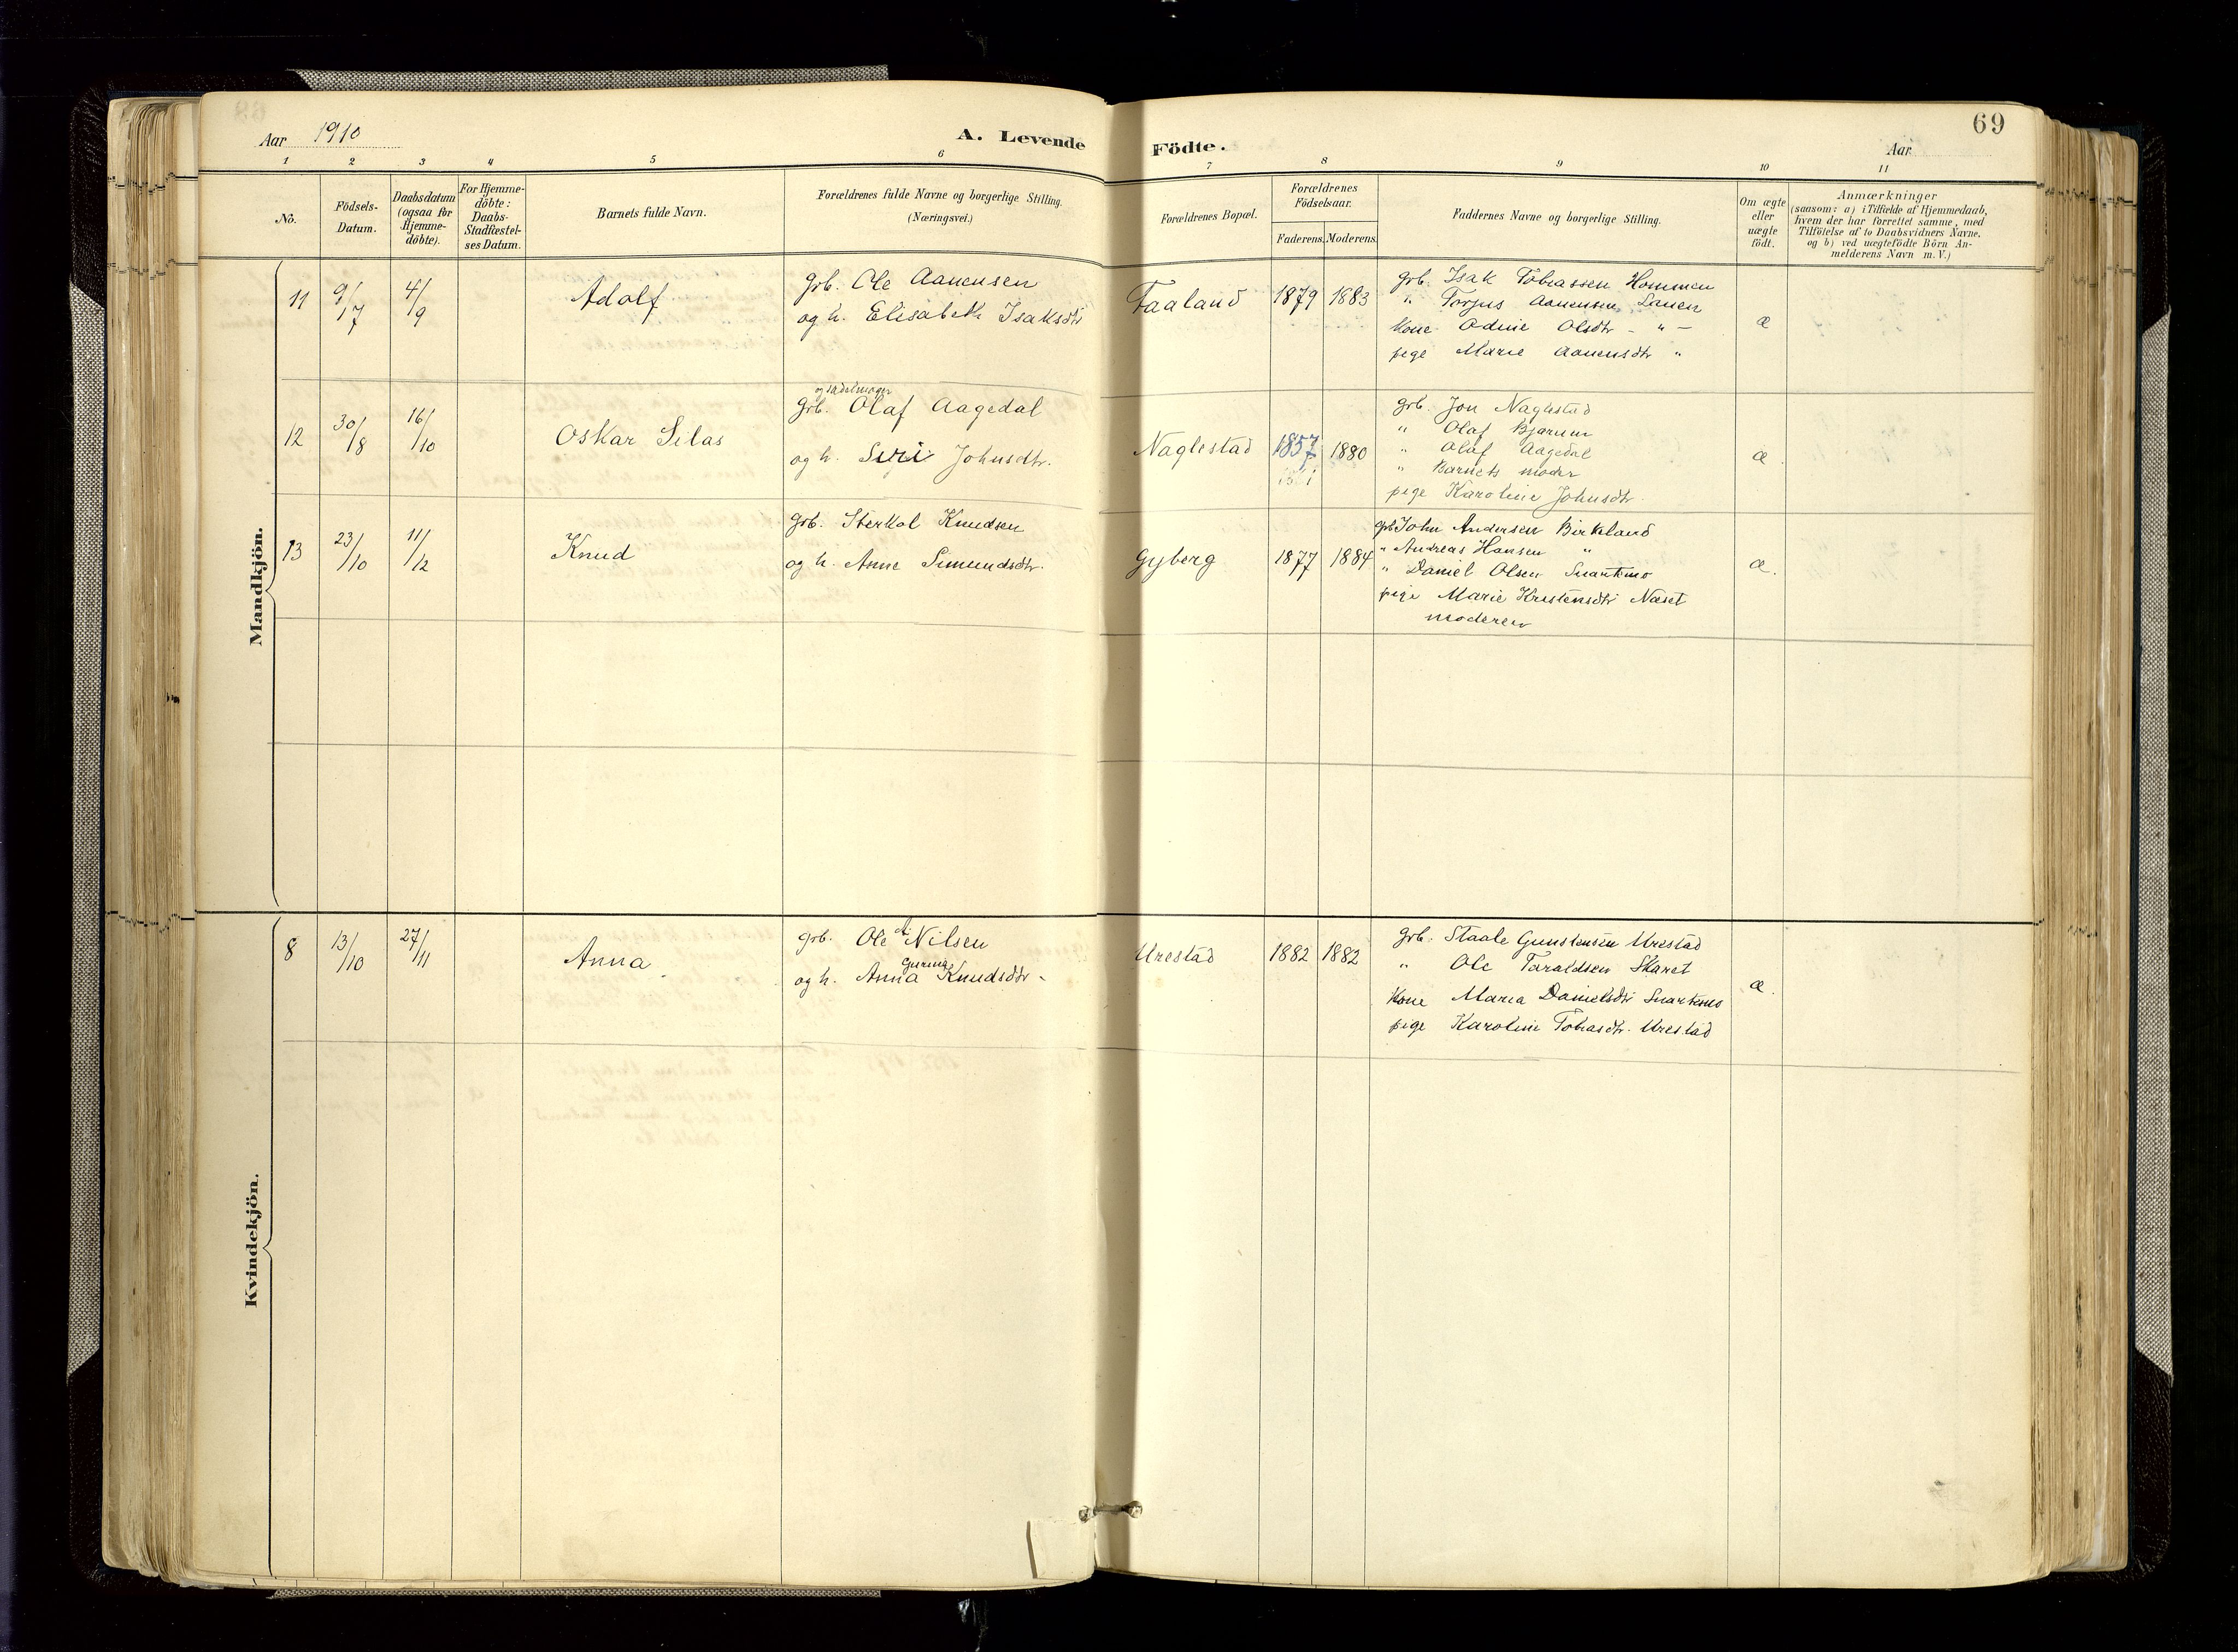 69
Aar 1910
A. Levende Födte.
Aar
1 2 3 4 5 6 7 8 9 10 11
No.
Födsels-Datum.
Daabsdatum (ogsaa for Hjemme-döbte).
For Hjemme-döbte: Daabs-Stadfæstel-ses Datum.
Barnets fulde Navn.
Forældrenes fulde Navne og borgerlige Stilling. (Næringsvei.)
Forældrenes Bopæl.
Forældrenes Födselsaar.
Faderens. Moderens.
Faddernes Navne og borgerlige Stilling.
Om ægte eller uægte födt.
Anmærkninger
(saasom: a) i Tilfælde af Hjemmedaab,
hvem der har forrettet samme, med
Tilföielse af to Daabsvidners Navne.
og b) ved uægtefödte Börn An-
melderens Navn m.V.)
Mandkjön.
11 9/17 4/9 Adolf
grb. Ole Aanensen
og h. Elisabeth Isaksdtr
Faaland 1879 1883
grb. Isak Tobiassen Hommen
" Torjus Aanensen Lauen
kone Odine Olsdtr - " -
pige Marie Aanensdtr "
æ
12 30/8 16/10 Oskar Silas
og sadelmager
grb. Olaf Aagedal
og h. Siri Johnsdtr.
Naglestad 1857 1880
grb. Jon Naglestad
" Olaf Bjærum
" Olaf Aagedal
" Barnets moder
pige Karoline Johnsdtr.
æ
13 23/10 11/12 Knud
grb. Sterkol Knudsen
og h. Anne Simundsdtr.
Gyberg 1877 1884
grb John Andersen Birkeland
" Andreas Hansen "
" Daniel Olsen Snartemo
pige Marie Kristensdtr Næset
moderen
æ.
Kvindekjön.
8 13/10 27/11 Anna
grb. Ole Nilsen
Gurina
og h. Anna Knudsdtr -
Urestad 1882 1882
grb. Staale Gunstensen Urestad
" Ole Taraldsen Skaret
Kone Maria Danielsdtr Snartemo
pige Karoline Tobiasdtr. Urestad
æ.